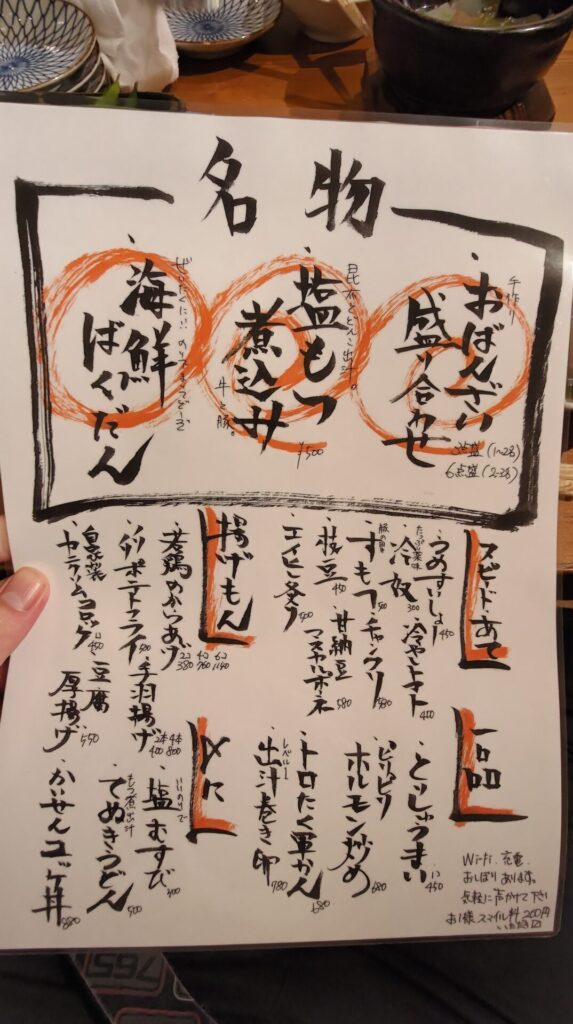 名物
手作り
おばんざい
盛り合わせ
3点盛(1~2名)
6点盛(2~3名)
昆布とどんこ出汁。
塩もつ
煮込み
牛と豚。
¥500
ぜいたくに!!
海鮮
ばくだん
スピードあて
うめすいしょー 450
たっぷり薬味
冷奴 300
冷やしトマト 400
豚の胃
すもつ 50
チャンクリ 580
枝豆 450
甘納豆
マスカルポネ 580
エイヒレ炙り 500
一品
とりしゅうまい 1コ450
ピリピリ
ホルモン炒め 680
トロたく軍かん 680
レベル1
出汁巻き卵 780
揚げもん
若鶏のからあげ 2コ380 4コ760 6コ1140
手羽揚げ 2本400 4本800
自家製
豆腐
厚揚げ 550
〆に
いいのりで
塩むすび 400
もつ煮出汁
たぬきうどん 500
かいせんユッケ丼 880
Wi-Fi.充電.
おしぼりあります。
気軽に声かけて下さい
お1様スマイル料200円
いただき〼